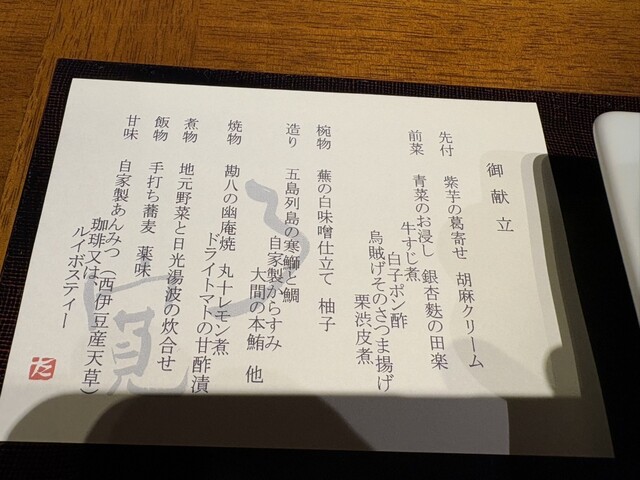 御献立
先付 紫芋の葛寄せ 胡麻クリーム
前菜 青菜のお浸し 銀杏麩の田楽
牛すじ煮 白子ポン酢
烏賊げそのさつま揚げ
栗渋皮煮
椀物 蕪の白味噌仕立て 柚子
造り 五島列島の寒鰤と鯛
自家製からすみ
大間の本鮪 他
焼物 勘八の幽庵焼 丸十レモン煮
ドライトマトの甘酢漬
煮物 地元野菜と日光湯波の炊合せ
飯物 手打ち蕎麦 薬味
甘味 自家製あんみつ(西伊豆産天草)
珈琲又は
ルイボスティー